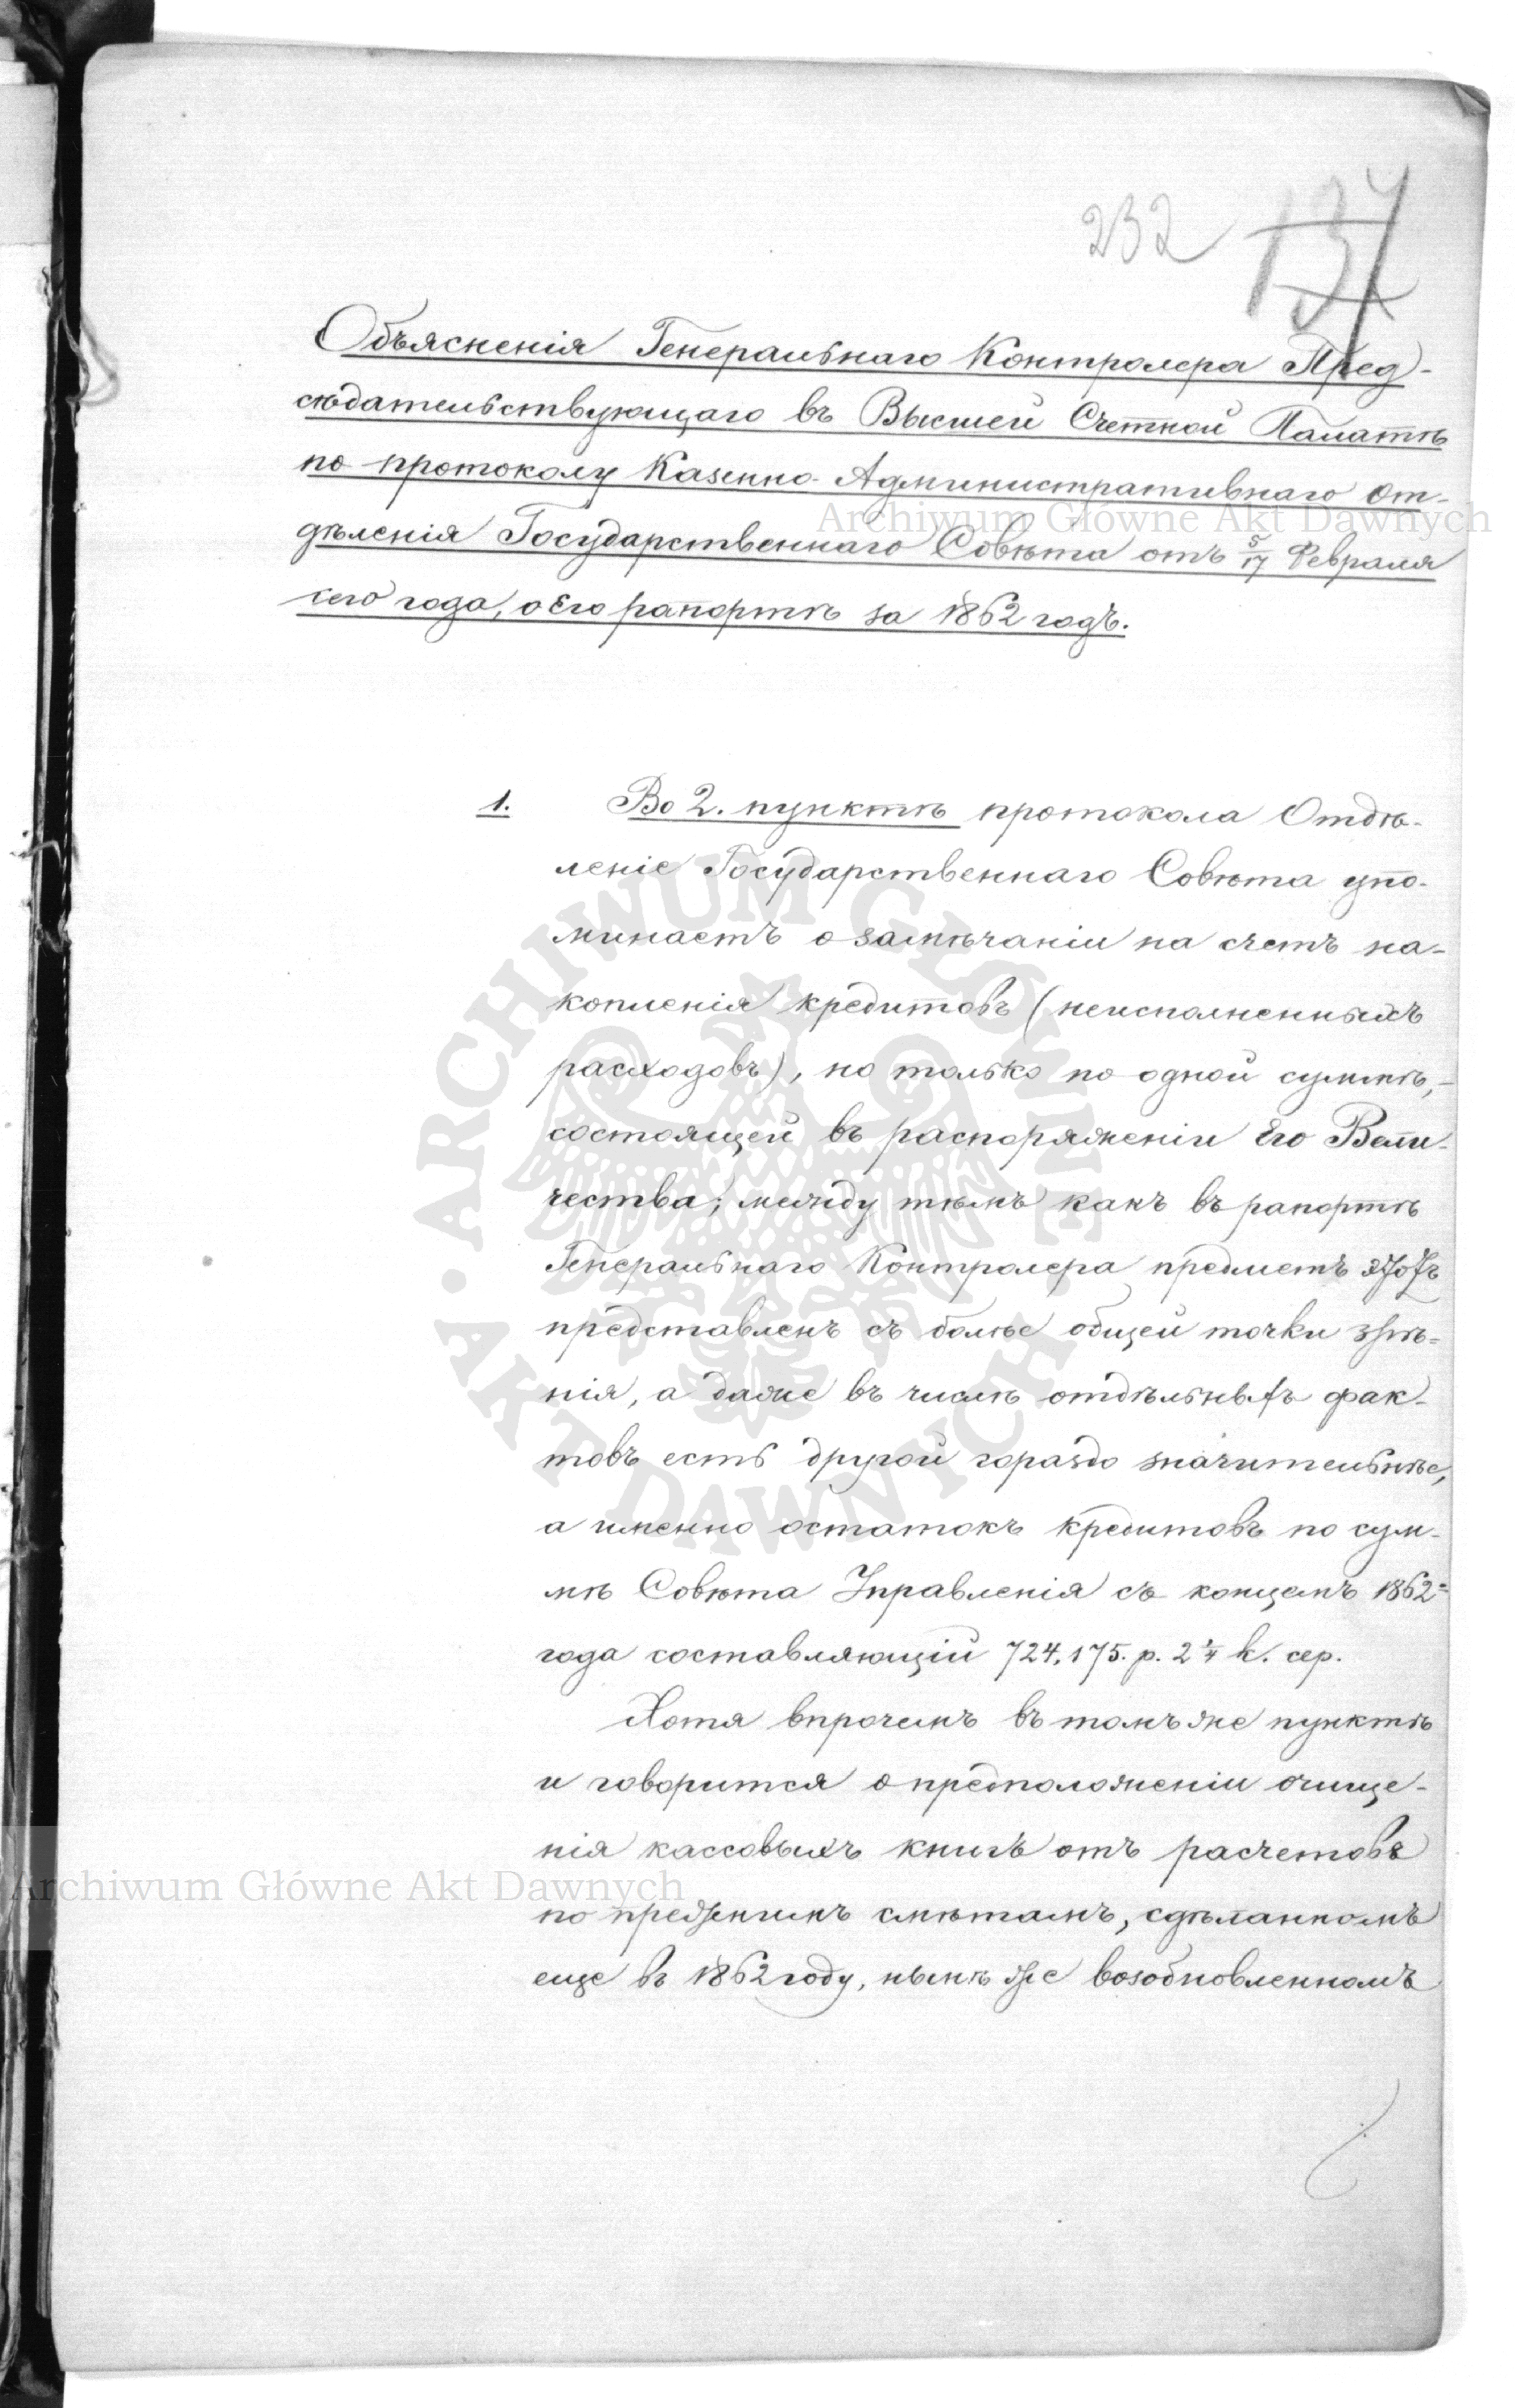 232 137
Объясненія Генеральнаго Контролера Пред-
сѣдательствующаго въ Высшей Счетной Палатѣ
по протоколу Казенно-Административнаго От-
дѣленія Государственнаго Совѣта отъ 5/17 Февраля
сего года, о Его рапортѣ за 1862 годъ.
1. Во 2. пунктѣ протокола Отдѣ-
леніе Государственнаго Совѣта упо-
минаетъ о замѣчаніи на счетъ на-
копленія кредитовъ (неисполненныхъ
расходовъ), но только по одной суммѣ,
состоящей въ распоряженіи Его Вели-
чества; между тѣмъ какъ въ рапортѣ
Генеральнаго Контролера предметъ этотъ
представленъ съ болѣе общей точки зрѣ-
нія, а даже въ числѣ отдѣльныхъ фак-
товъ есть другой гораздо значительнѣе,
а именно остатокъ кредитовъ по сум-
мѣ Совѣта Управленія съ концемъ 1862=
года составляющій 724,175. р. 2 1/4 к. сер.
Хотя впрочемъ въ томъ же пунктѣ
и говорится о предположеніи очище-
нія кассовыхъ книгъ отъ расчетовъ
по прежнимъ смѣтамъ, сдѣланномъ
еще въ 1862 году, нынѣ же возобновленномъ
Archiwum Główne Akt Dawnych
ARCHIWUM GŁÓWNE · AKT DAWNYCH ·
Archiwum Główne Akt Dawnych